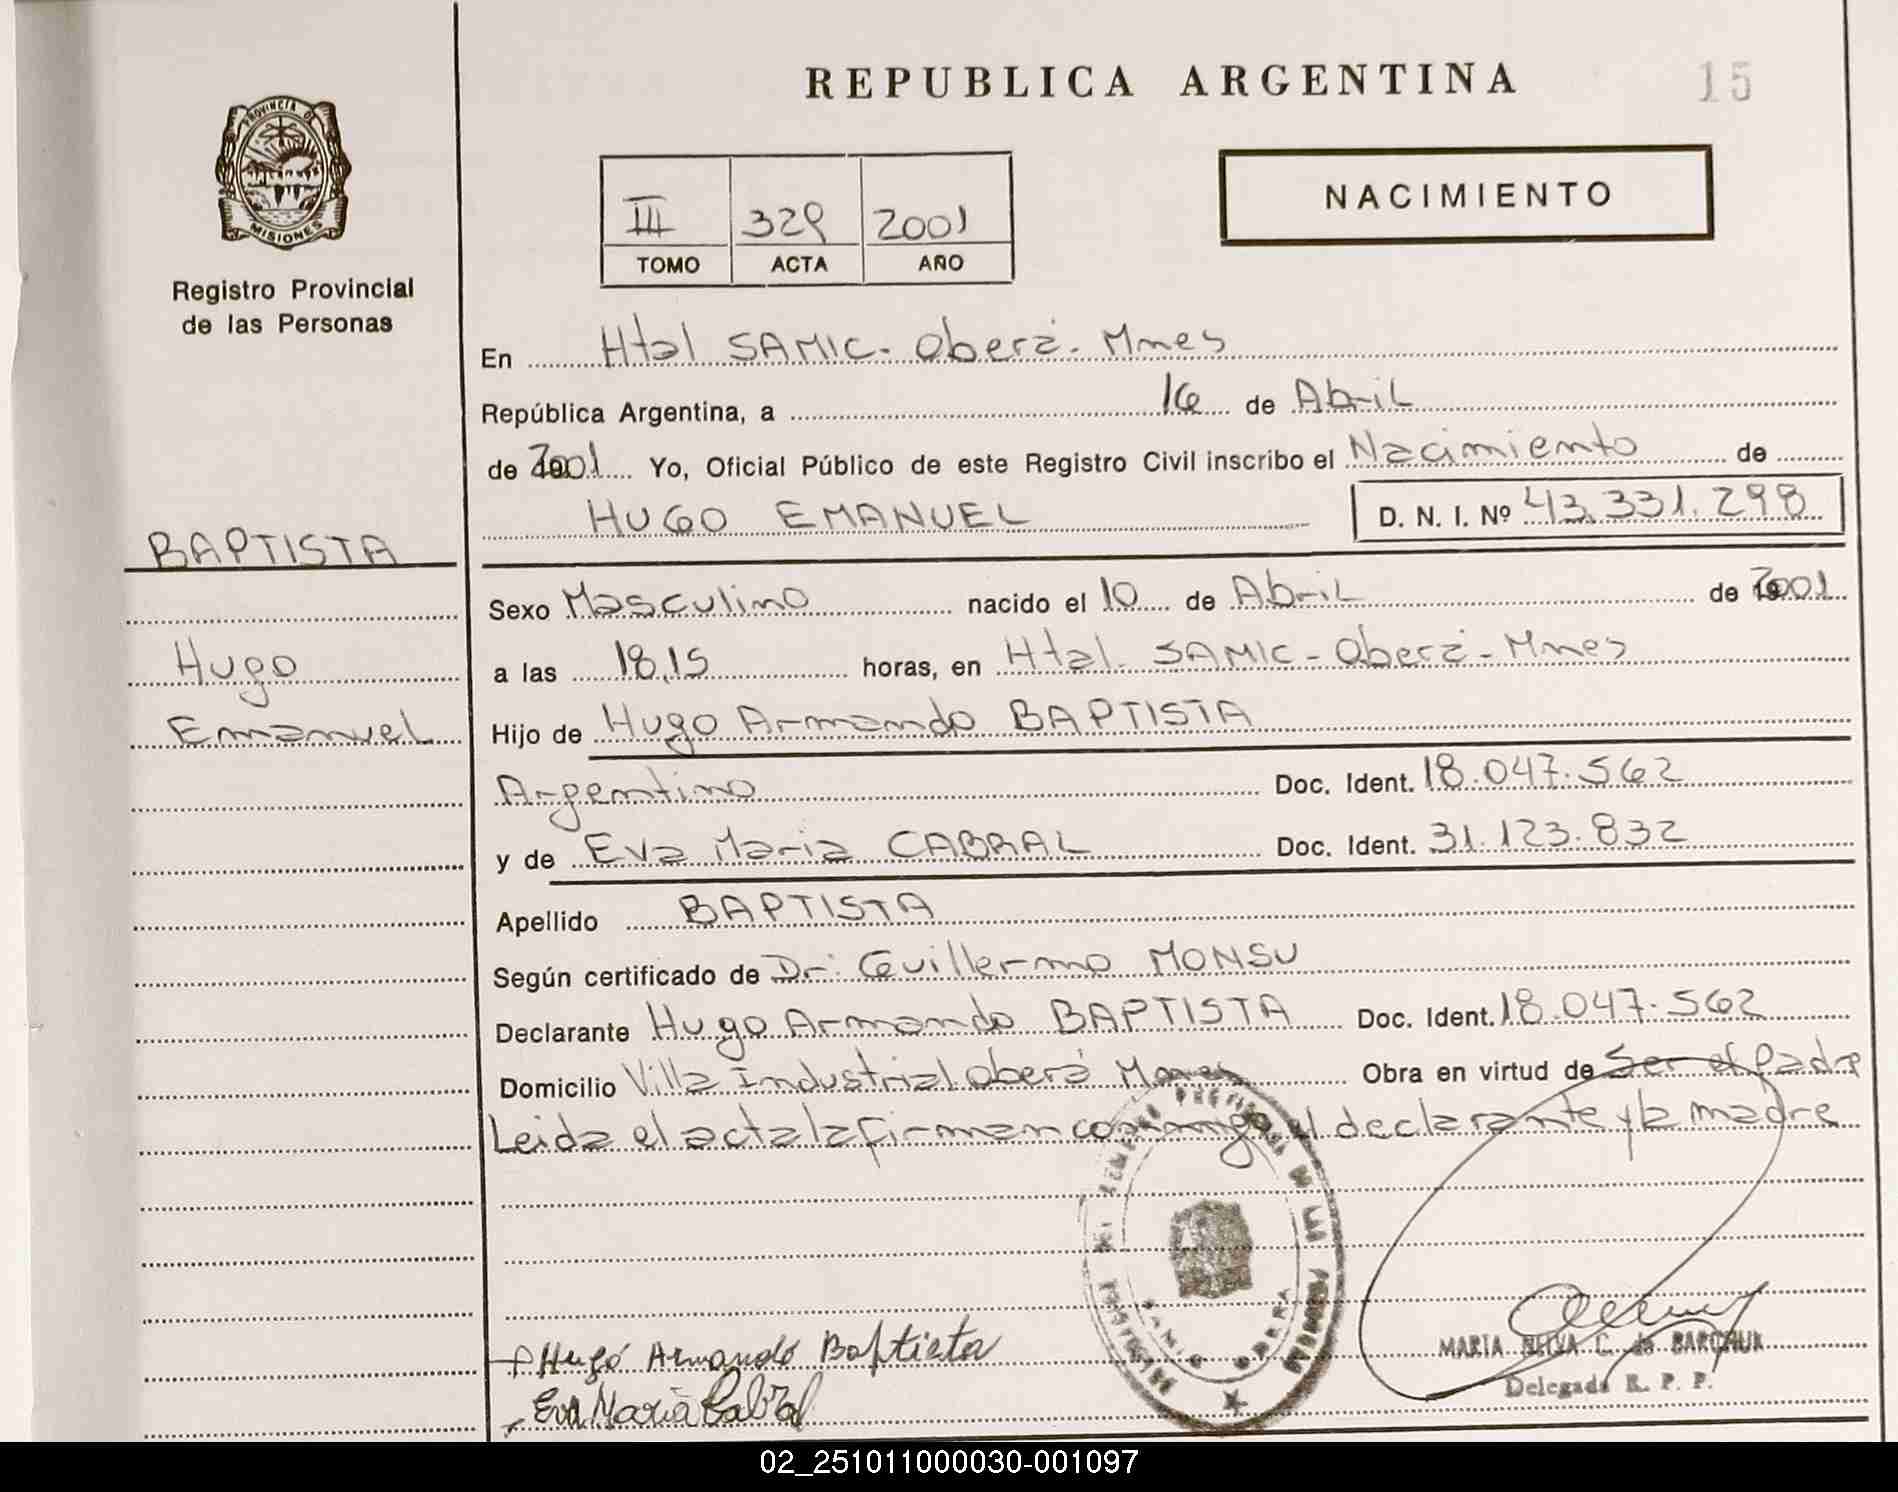 REPUBLICA ARGENTINA
15
PROVINCIA DE
MISIONES
Registro Provincial
de las Personas
III 329 2001
TOMO ACTA AÑO
NACIMIENTO
En Htal SAMIC - Oberá - Mnes
República Argentina, a 16 de Abril
de 2001 Yo, Oficial Público de este Registro Civil inscribo el Nacimiento de
HUGO EMANUEL D. N. I. Nº 43.331.298
BAPTISTA
Hugo
Emanuel
Sexo Masculino nacido el 10 de Abril de 2001
a las 18,15 horas, en Htal. SAMIC - Oberá - Mnes
Hijo de Hugo Armando BAPTISTA
Argentino Doc. Ident. 18.047.562
y de Eva Maria CABRAL Doc. Ident. 31.123.832
Apellido BAPTISTA
Según certificado de Dr: Guillermo MONSU
Declarante Hugo Armando BAPTISTA Doc. Ident. 18.047.562
Domicilio Villa Industrial oberá Mnes Obra en virtud de Ser el Padre
Leida el acta la firman conmigo el declarante y la madre
Hugo Armando Baptista
Eva Maria Cabral
MARIA NELVA C. de BARCHUK
Delegada R. P. P.
02_251011000030-001097